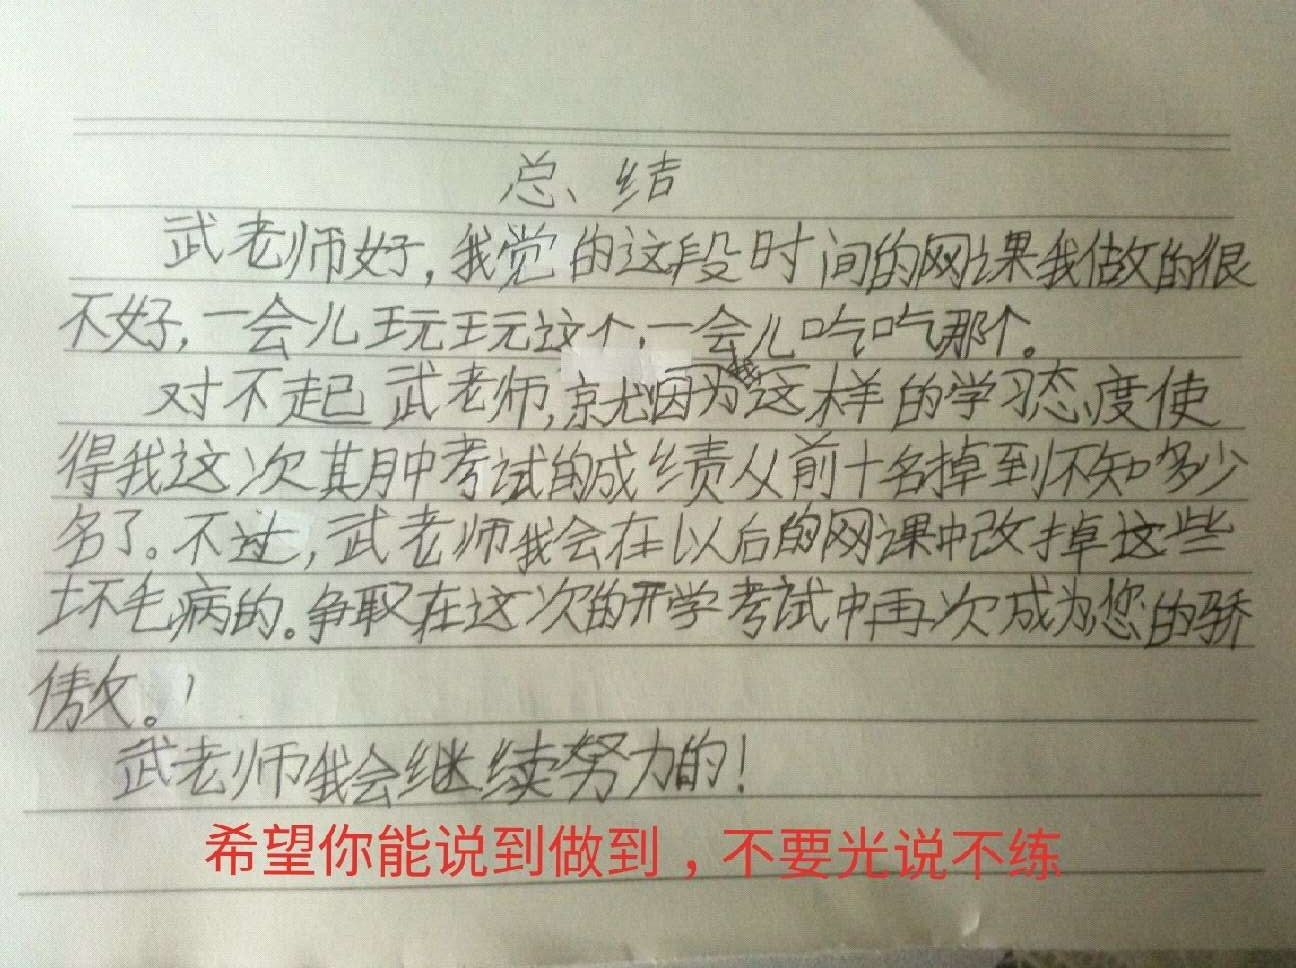 总结
武老师好，我觉的这段时间的网课我做的很
不好，一会儿玩玩这个，一会儿吃吃那个。
对不起武老师，就因为这样的学习态度使
得我这次其月中考试的成绩从前十名掉到不知多少
名了。不过，武老师我会在以后的网课中改掉这些
坏毛病的。争取在这次的开学考试中再次成为您的骄
傲。
武老师我会继续努力的！
希望你能说到做到，不要光说不练